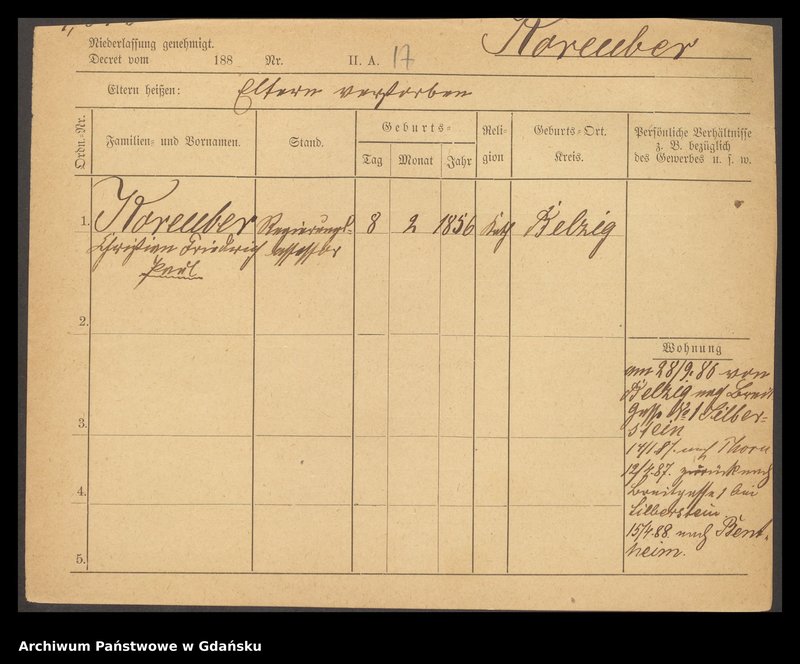 Niederlassung genehmigt.
Decret vom 188 Nr. II. A. 17
Koreuber
Eltern heißen: Eltern verstorben
Ordn.-Nr.
Familien- und Vornamen.
Stand.
Geburts-
Tag
Monat
Jahr
Reli-
gion
Geburts-Ort.
Kreis.
Persönliche Verhältnisse
z. B. bezüglich
des Gewerbes u. s. w.
1. Koreuber Regierungs- 8 2 1856 Kath Belzig
Christian Friedrich assessor
Paul
2.
3.
4.
5.
Wohnung
am 28/9. 86 von
Belzig nach Breit
Gasse No 1 Silber-
stein
14/1 87. nach Thorn
12/4. 87. zurück nach
Breitgasse 1 bei
Silberstein
15/4 88. nach Bent-
heim.
Archiwum Państwowe w Gdańsku